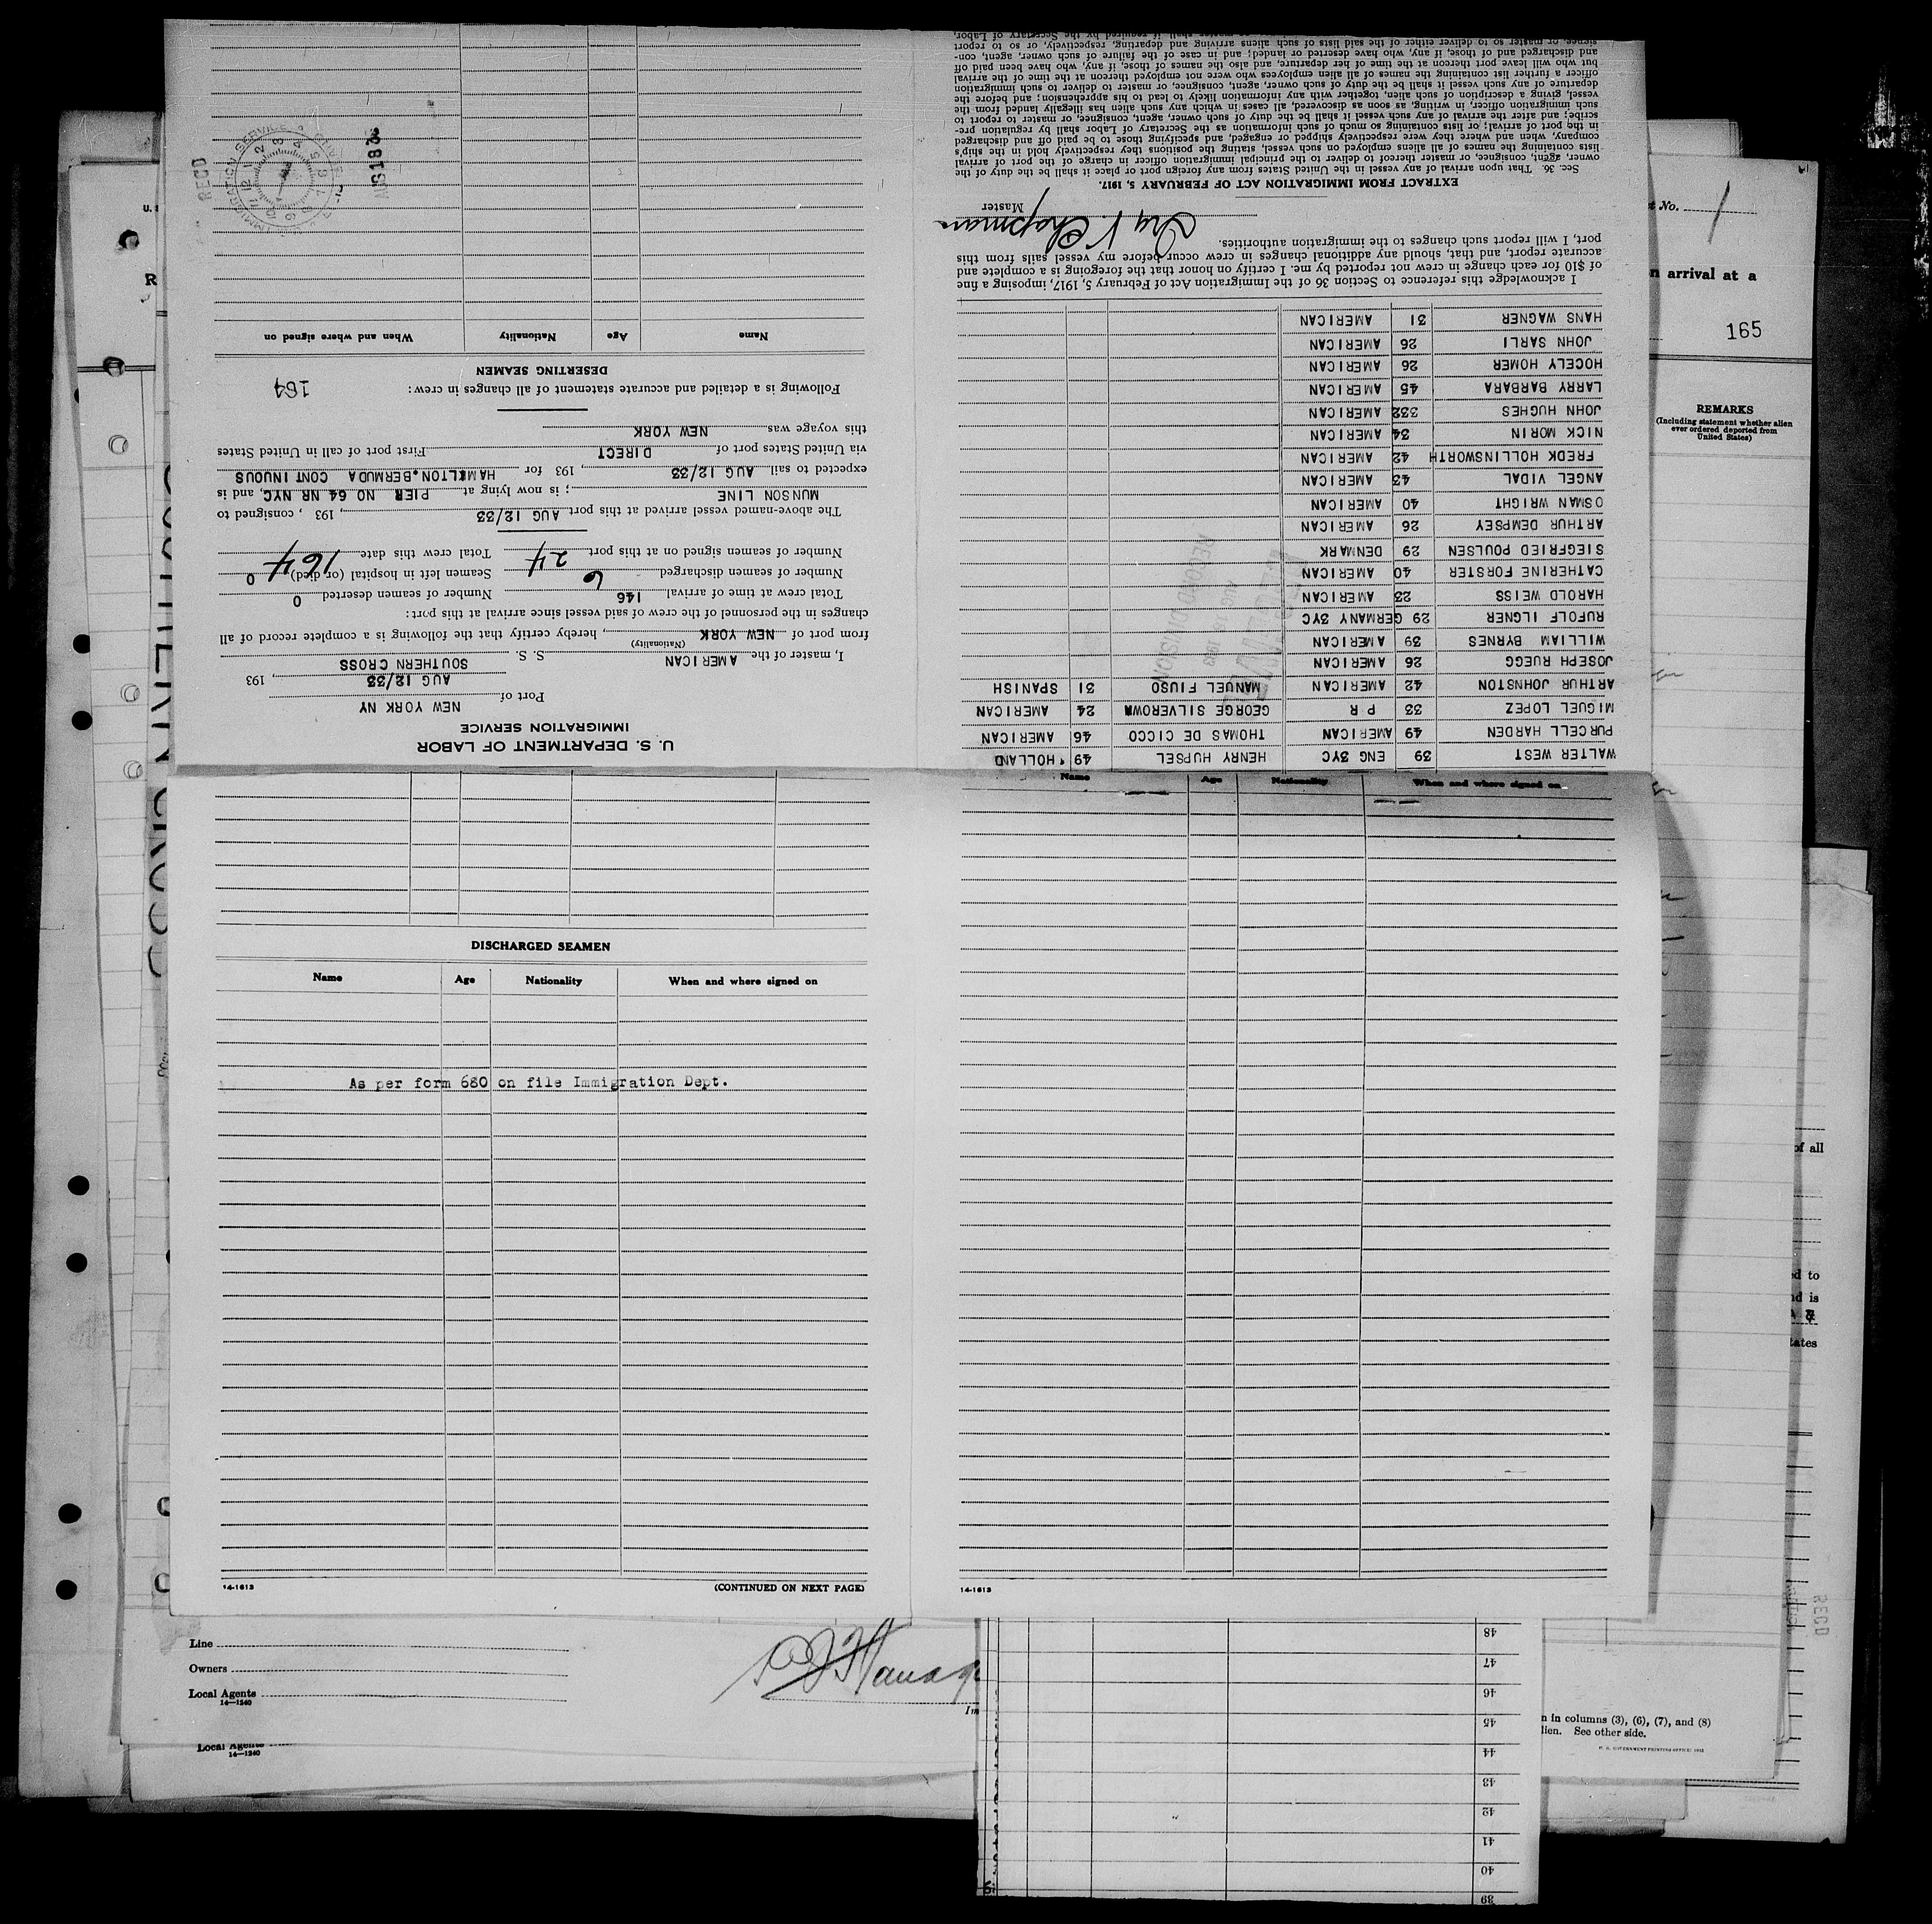 U. S. DEPARTMENT OF LABOR
IMMIGRATION SERVICE
NEW YORK NY
Port of
AUG 12/33, 193
I, master of the AMERICAN S. S. SOUTHERN CROSS
(Nationality)
from port of NEW YORK, hereby certify that the following is a complete record of all
changes in the personnel of the crew of said vessel since arrival at this port:
Total crew at time of arrival 146 Number of seamen deserted 0
Number of seamen discharged 6 Seamen left in hospital (or died) 0
Number of seamen signed on at this port 24 Total crew this date 164
The above-named vessel arrived at this port AUG 12/33, 193 , consigned to
MUNSON LINE ; is now lying at PIER NO 64 NR NYC, and is
expected to sail AUG 12/33, 193 for HAMILTON.BERMUDA CONTINUOUS
via United States port of DIRECT First port of call in United States
this voyage was NEW YORK
Following is a detailed and accurate statement of all changes in crew: 164
DESERTING SEAMEN
Name Age Nationality When and where signed on
RECD
IMMIGRATION SERVICE
AUG 18
WALTER WEST 39 ENG 3YC HENRY HUPSEL 49 HOLLAND
PURCELL HARDEN 49 AMERICAN THOMAS DE CICCO 46 AMERICAN
MIGUEL LOPEZ 33 P R GEORGE SILVEROWN 24 AMERICAN
ARTHUR JOHNSTON 42 AMERICAN MANUEL FIUSO 31 SPANISH
JOSEPH RUEGG 26 AMERICAN
WILLIAM BYRNES 39 AMERICAN
RUFOLF ILGNER 29 GERMANY 3YC
HAROLD WEISS 23 AMERICAN
CATHERINE FORSTER 40 AMERICAN
SIEGFRIED POULSEN 29 DENMARK
ARTHUR DEMPSEY 26 AMERICAN
OSMAN WRIGHT 40 AMERICAN
ANGEL VIDAL 43 AMERICAN
FREDK HOLLINSWORTH 42 AMERICAN
NICK MORIN 34 AMERICAN
JOHN HUGHES 332 AMERICAN
LARRY BARBARA 45 AMERICAN
HOCELY HOMER 26 AMERICAN
JOHN SARLI 26 AMERICAN
HANS WAGNER 31 AMERICAN
RECORD DIVISION
I acknowledge this reference to Section 36 of the Immigration Act of February 5, 1917, imposing a fine
of $10 for each change in crew not reported by me. I certify on honor that the foregoing is a complete and
accurate report, and that, should any additional changes in crew occur before my vessel sails from this
port, I will report such changes to the immigration authorities.
Ira V. Chapman
Master
EXTRACT FROM IMMIGRATION ACT OF FEBRUARY 5, 1917.
Sec. 36. That upon arrival of any vessel in the United States from any foreign port or place it shall be the duty of the
owner, agent, consignee, or master thereof to deliver to the principal immigration officer in charge of the port of arrival
lists containing the names of all aliens employed on such vessel, stating the positions they respectively hold in the ship's
company, when and where they were respectively shipped or engaged, and specifying those to be paid off and discharged
in the port of arrival; or lists containing so much of such information as the Secretary of Labor shall by regulation pre-
scribe; and after the arrival of any such vessel it shall be the duty of such owner, agent, consignee, or master to report to
such immigration officer, in writing, as soon as discovered, all cases in which any such alien has illegally landed from the
vessel, giving a description of such alien, together with any information likely to lead to his apprehension; and before the
departure of any such vessel it shall be the duty of such owner, agent, consignee, or master to deliver to such immigration
officer a further list containing the names of all alien employees who were not employed thereon at the time of the arrival
but who will leave port thereon at the time of her departure, and also the names of those, if any, who have been paid off
and discharged and of those, if any, who have deserted or landed; and in case of the failure of such owner, agent, con-
signee, or master so to deliver either of the said lists of such aliens arriving and departing, respectively, or so to report
DISCHARGED SEAMEN
Name Age Nationality When and where signed on
As per form 680 on file Immigration Dept.
14-1613 (CONTINUED ON NEXT PAGE)
Name Age Nationality When and where signed on
14-1613
No. 1
arrival at a
165
REMARKS
(Including statement whether alien
ever ordered deported from
United States)
of all
to
is
Line
Owners
Local Agents
14—1240
Local Agents
14—1240
48
47
46
45
44
43
42
41
40
39
in columns (3), (6), (7), and (8)
See other side.
RECD